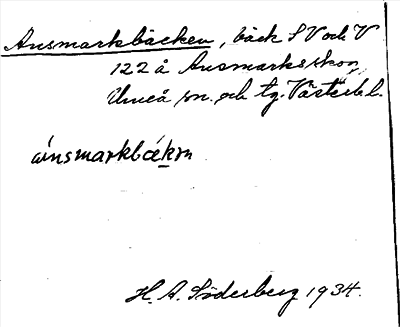 Ansmarkbäcken, bäck S V och V
122 å Ansmarks skog,
Umeå sn. och tg. Västerb. l.
ánsmarkbækṇ
H. A. Söderberg 1934.